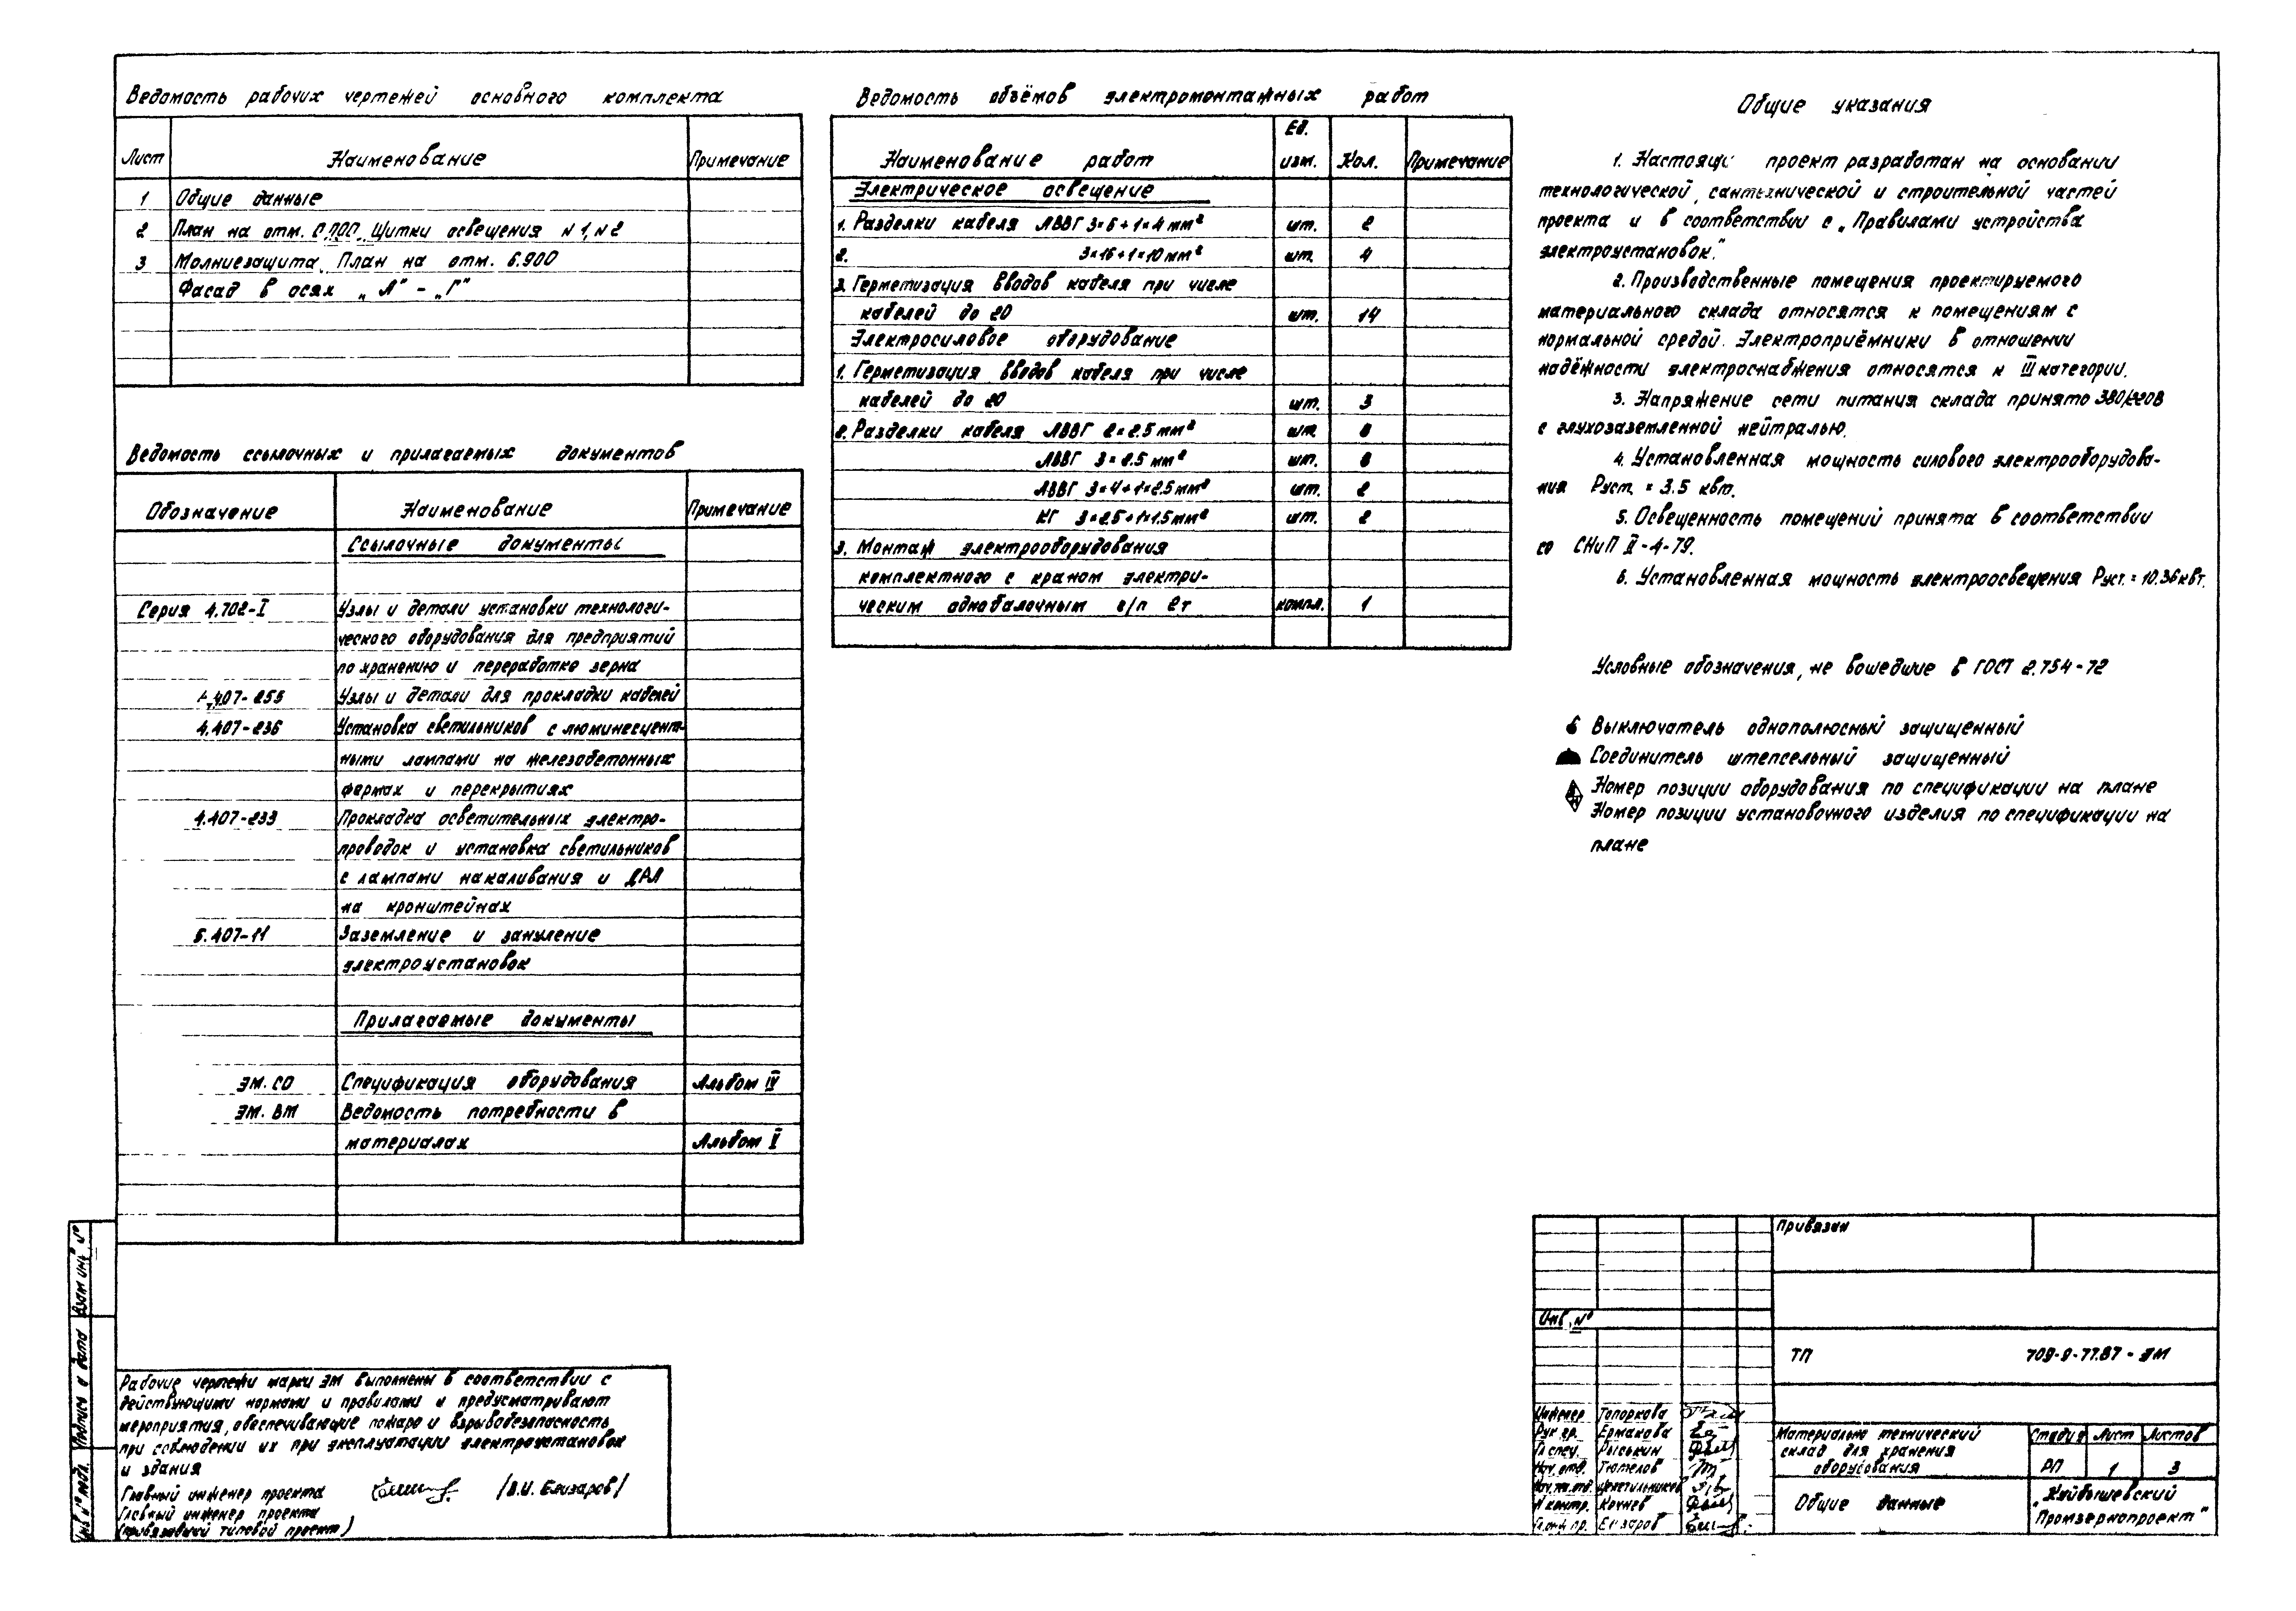 Ведомость рабочих чертежей основного комплекта
Лист Наименование Примечание
1 Общие данные
2 План на отм. 0.000. Щитки освещения N 1, N 2
3 Молниезащита. План на отм. 6.900
Фасад в осях „А" - „Г"
Ведомость ссылочных и прилагаемых документов
Обозначение Наименование Примечание
Ссылочные документы
Серия 4.702-I Узлы и детали установки технологи-
ческого оборудования для предприятий
по хранению и переработке зерна
4.407-255 Узлы и детали для прокладки кабелей
4.407-236 Установка светильников с люминесцент-
ными лампами на железобетонных
фермах и перекрытиях
4.407-233 Прокладка осветительных электро-
проводок и установка светильников
с лампами накаливания и ДРЛ
на кронштейнах
5.407-11 Заземление и зануление
электроустановок
Прилагаемые документы
ЭМ. СО Спецификация оборудования Альбом IV
ЭМ. ВМ Ведомость потребности в
материалах Альбом V
Ведомость объёмов электромонтажных работ
Наименование работ Ед. изм. Кол. Примечание
Электрическое освещение
1. Разделки кабеля АВВГ 3×6+1×4 мм² шт. 2
2. 3×16+1×10 мм² шт. 4
3. Герметизация вводов кабеля при числе
кабелей до 20 шт. 14
Электросиловое оборудование
1. Герметизация вводов кабеля при числе
кабелей до 20 шт. 3
2. Разделки кабеля АВВГ 2×2.5 мм² шт.
АВВГ 3×2.5 мм² шт.
АВВГ 3×4+1×2.5 мм² шт. 2
КГ 3×2.5+1×1.5 мм² шт. 2
3. Монтаж электрооборудования
комплектного с краном электри-
ческим однобалочным г/п 2т компл. 1
Общие указания
1. Настоящи проект разработан на основании
технологической, сантехнической и строительной частей
проекта и в соответствии с „Правилами устройства
электроустановок."
2. Производственные помещения проектируемого
материального склада относятся к помещениям с
нормальной средой. Электроприёмники в отношении
надёжности электроснабжения относятся к III категории.
3. Напряжение сети питания склада принято 380/220В
с глухозаземленной нейтралью.
4. Установленная мощность силового электрооборудова-
ния Руст. = 3.5 квт.
5. Освещенность помещений принята в соответствии
со СНиП II-4-79.
6. Установленная мощность электроосвещения Руст. = 10.36квт.
Условные обозначения, не вошедшие в ГОСТ 2.754-72
Выключатель однополюсный защищенный
Соединитель штепсельный защищенный
Номер позиции оборудования по спецификации на плане
Номер позиции установочного изделия по спецификации на
плане
Взам инв. №
Подпись и дата
Инв № подл.
Рабочие чертежи марки ЭМ выполнены в соответствии с
действующими нормами и правилами и предусматривают
мероприятия, обеспечивающие пожаро и взрывобезопасность
при соблюдении их при эксплуатации электроустановок
и здания
Главный инженер проекта /В.И. Елизаров/
Главный инженер проекта
(привязавший типовой проект)
Привязан
Инв. №
ТП 709-9-77.87 - ЭМ
Инженер Топоркова
Рук гр. Ермакова
Гл спец. Рыськин
Нач. отд. Тюмелов
Н контр. Кочнев
Гл. инж пр. Елизаров
Материально технический
склад для хранения
оборудования
Стадия Лист Листов
РП 1 3
Общие данные
„Куйбышевский
Промзернопроект"